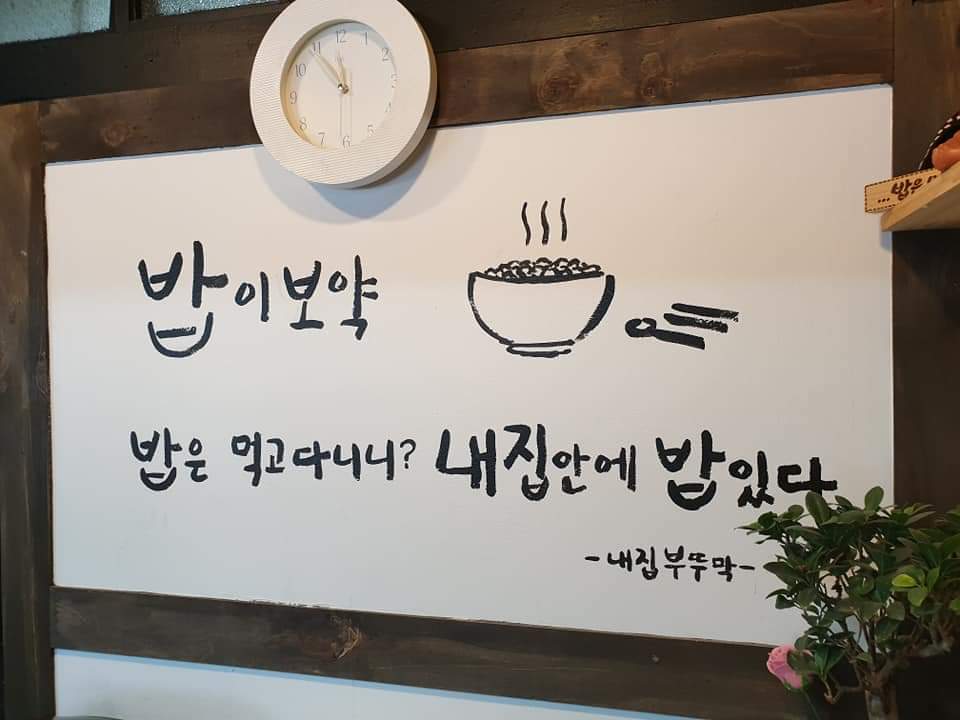 밥이보약
밥은 먹고다니니? 내집안에 밥있다
-내집부뚜막-
12
1
2
5
6
7
8
9
10
11